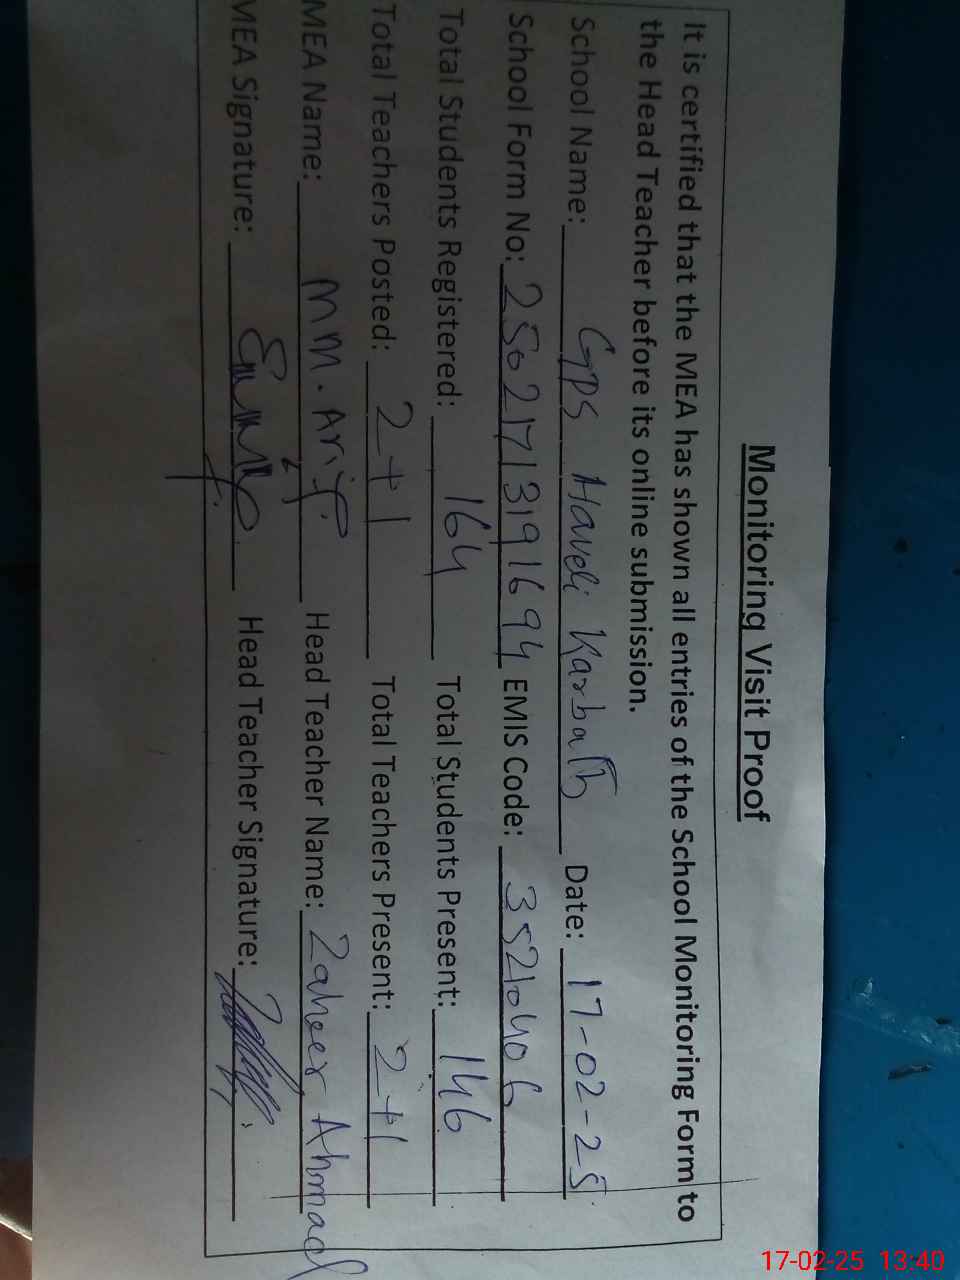 Monitoring Visit Proof
It is certified that the MEA has shown all entries of the School Monitoring Form to
the Head Teacher before its online submission.
School Name: GPS Haveli Karbath Date: 17-02-25
School Form No: 25021713191694 EMIS Code: 35210406
Total Students Registered: 164 Total Students Present: 146
Total Teachers Posted: 2+1 Total Teachers Present: 2+1
MEA Name: M M. Arif Head Teacher Name: Zaheer Ahmad
MEA Signature: Head Teacher Signature:
17-02-25 13:40